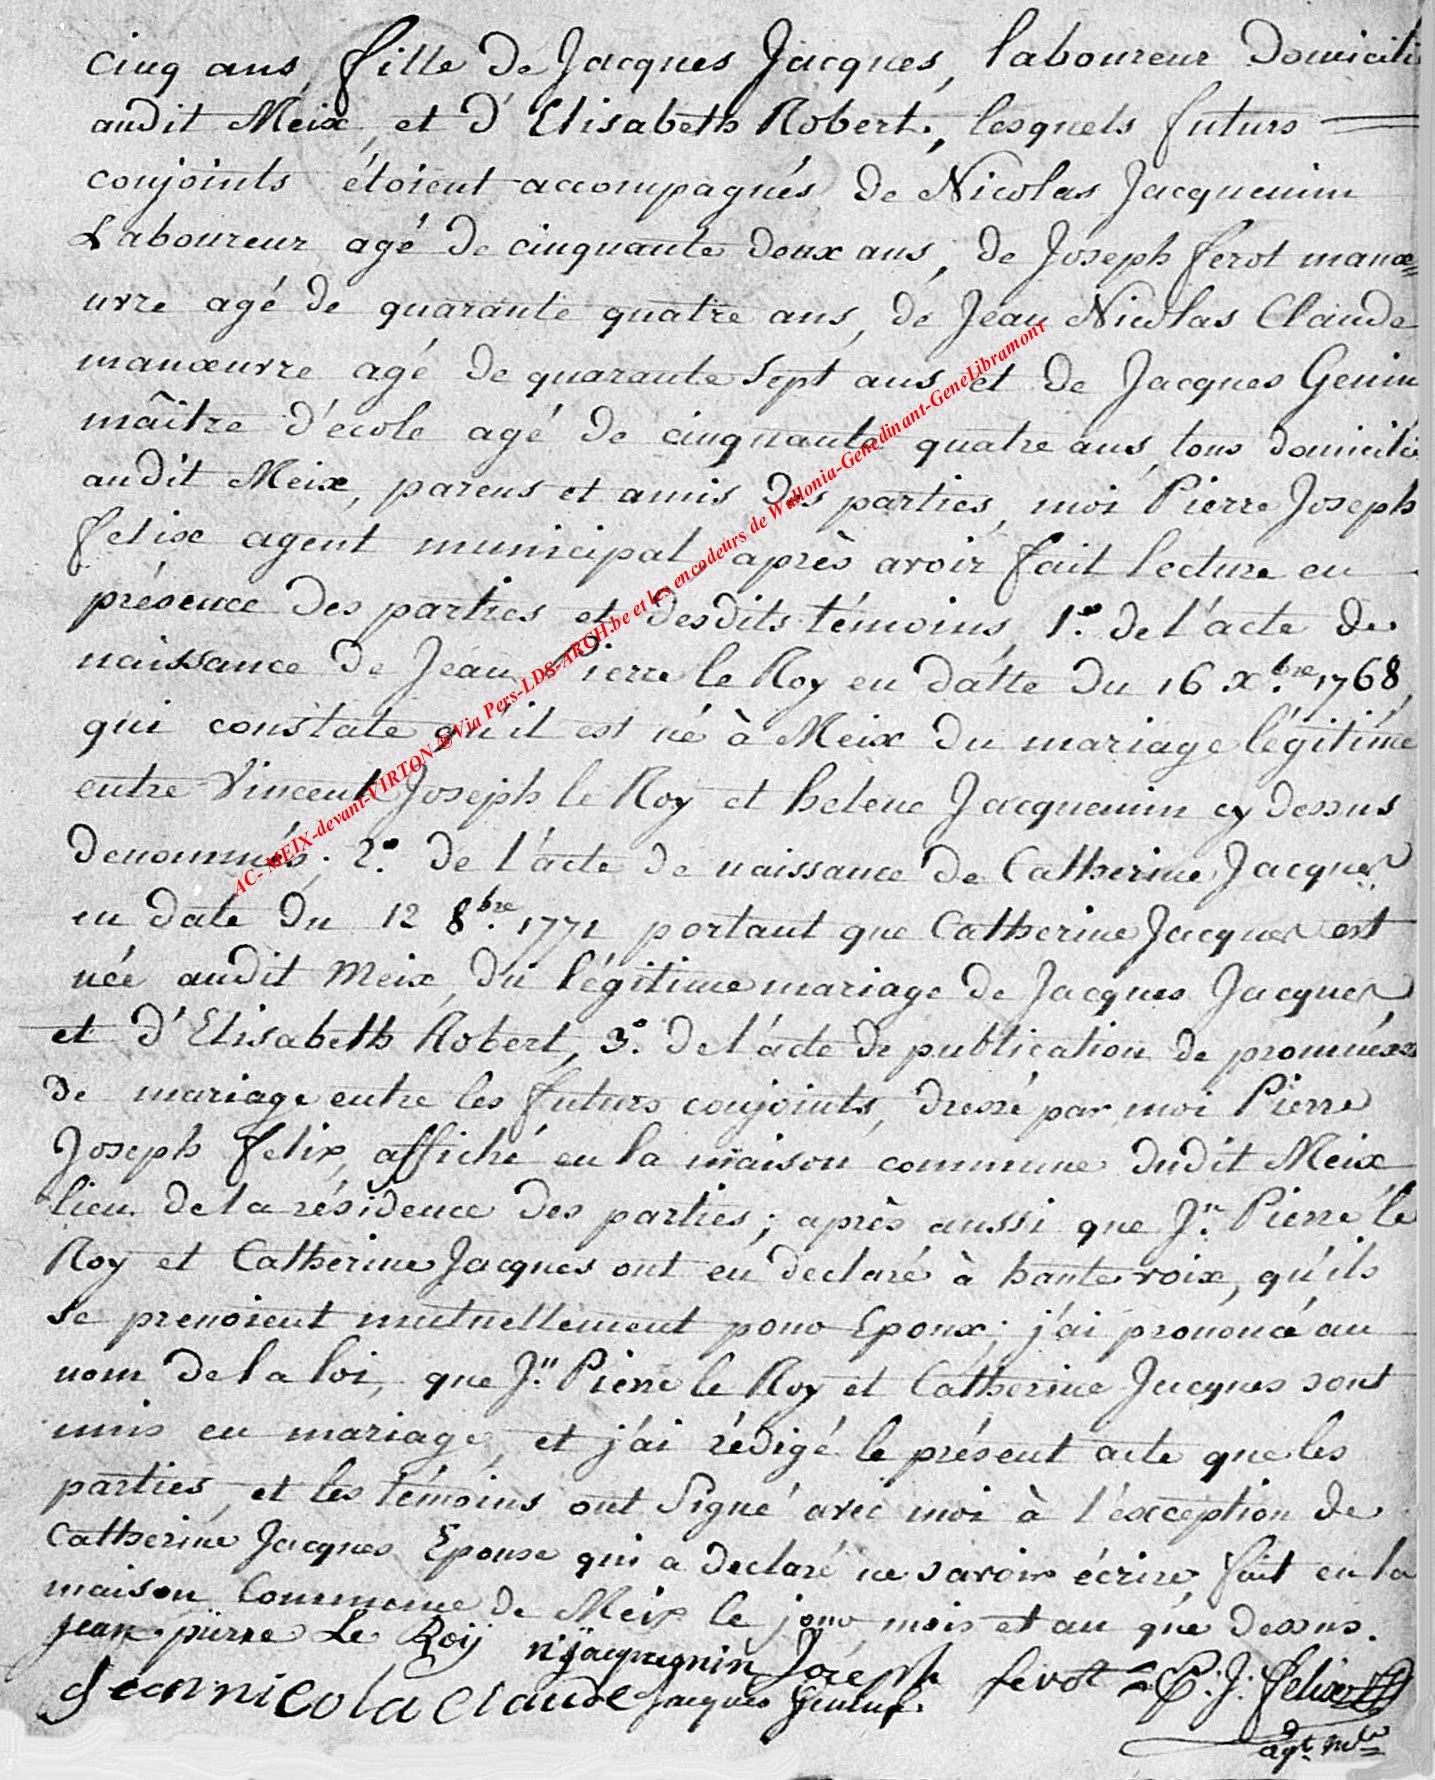 cinq ans, fille de Jacques Jacques, laboureur domicilié
audit Meix, et d'Elisabeth Robert, lesquels futurs
conjoints étoient accompagnés de Nicolas Jacquemin
Laboureur agé de cinquante deux ans, de Joseph ferot manoe=
uvre agé de quarante quatre ans, de Jean Nicolas Claude
manœuvre agé de quarante sept ans et de Jacques Genin
maître d'école agé de cinquante quatre ans, tous domicilié
audit Meix, parens et amis des parties, moi Pierre Joseph
felix agent municipal, après avoir fait lecture en
présence des parties et desdits témoins, 1.° de l'acte de
naissance de Jean Pierre le Roy en datte du 16 X.bre 1768,
qui constate qu'il est né à Meix du mariage légitime
entre Vincent Joseph le Roy et helene Jacquemin cy dessus
denommés; 2.° de l'acte de naissance de Catherine Jacques
en date du 12 8.bre 1771 portant que Catherine Jacques est
née audit Meix, du légitime mariage de Jacques Jacques,
et d'Elisabeth Robert, 3.° de l'acte de publication de promesses
de mariage entre les futurs conjoints, dressé par moi Pierre
Joseph felix, affiché en la maison commune dudit Meix
lieu de la résidence des parties; après aussi que J.n Pierre le
Roy et Catherine Jacques ont eu declaré à haute voix, qu'ils
se prenoient mutuellement pour Epoux; j'ai prononcé au
nom de la loi, que J.n Pierre le Roy et Catherine Jacques sont
unis en mariage, et j'ai rédigé le présent acte que les
parties, et les témoins ont signé avec moi à l'exception de
Catherine Jacques Epouse qui a declaré ne savoir écrire, fait en la
maison Commune de Meix le jour, mois et an que dessus.
jean pierre Le Roij n: jacquemin Joseph ferot P: J: felix
Jean nicola claude Jacques Genin
agt. mal
AC- MEIX-devant-VIRTON ©Via Pers-LDS-ARCH.be et les encodeurs de Wallonia-Genedinant-GeneLibramont